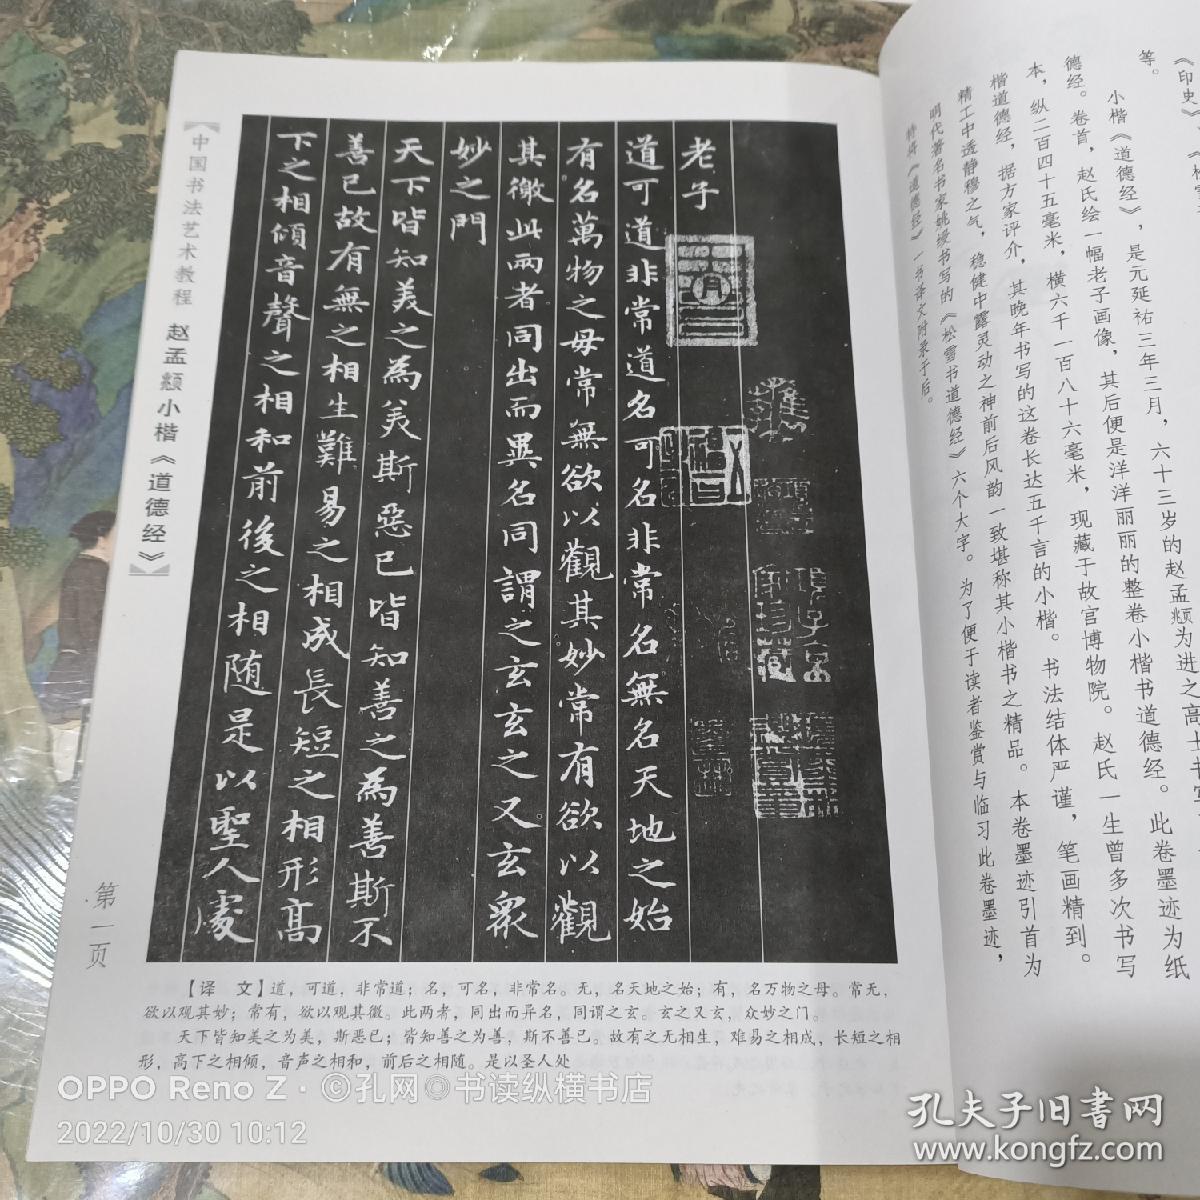 《印史》
等。
小楷《道德经》，是元延祐三年三月，六十三岁的赵孟頫为进之高士书写
德经。卷首，赵氏绘一幅老子画像，其后便是洋洋丽丽的整卷小楷书道德经。此卷墨迹为纸
本，纵二百四十五毫米，横六千一百八十六毫米，现藏于故宫博物院。赵氏一生曾多次书写
楷道德经，据方家评介，其晚年书写的这卷长达五千言的小楷。书法结体严谨，笔画精到。
精工中透静穆之气，稳健中露灵动之神前后风韵一致堪称其小楷书之精品。本卷墨迹引首为
明代著名书家姚绶书写的《松雪书道德经》六个大字。为了便于读者鉴赏与临习此卷墨迹，
特将《道德经》一书译文附录于后。
老子
道可道非常道名可名非常名無名天地之始
有名萬物之母常無欲以觀其妙常有欲以觀
其徼此兩者同出而異名同謂之玄玄之又玄衆
妙之門
天下皆知美之為美斯惡已皆知善之為善斯不
善已故有無之相生難易之相成長短之相形髙
下之相傾音聲之相和前後之相随是以聖人處
中国书法艺术教程 赵孟頫小楷《道德经》
第一页
【译 文】道，可道，非常道；名，可名，非常名。无，名天地之始；有，名万物之母。常无，
欲以观其妙；常有，欲以观其徼。此两者，同出而异名，同谓之玄。玄之又玄，众妙之门。
天下皆知美之为美，斯恶已；皆知善之为善，斯不善已。故有之无相生，难易之相成，长短之相
形，高下之相倾，音声之相和，前后之相随。是以圣人处
OPPO Reno Z · ©孔网©书读纵横书店
2022/10/30 10:12
孔夫子旧书网
www.kongfz.com